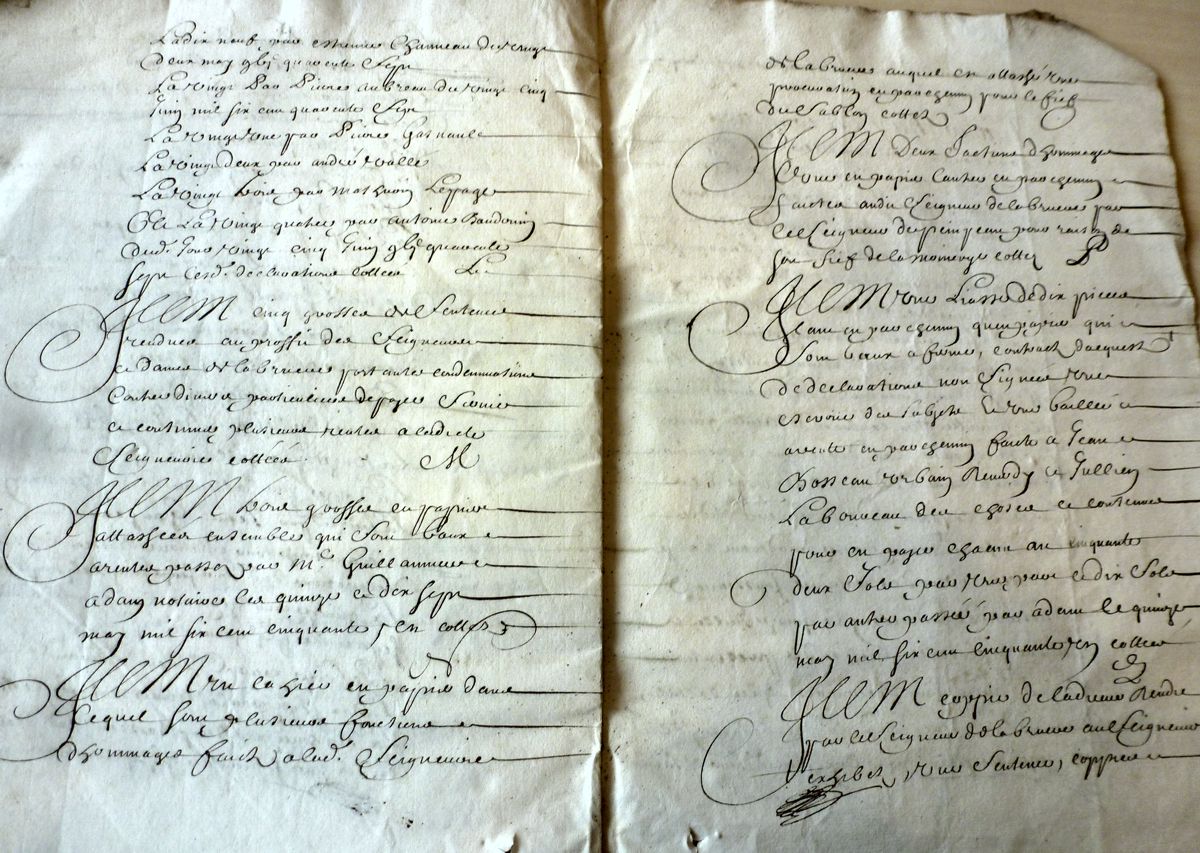 La dix neuf par estienne Chameau du vingt
deux may gbj quarente sept
La vingt par Pierre aubreau du vingt cinq
Juin mil six cens quarente sept
La vingt une par Pierre Garnault
La vingt deux par andré vallé
La vingt trois par mathurin Lepage
Et La vingt quatre par antoine Baudouin
dud. Jour vingt cinq Juin gbj quarente
sept lesd. declarations cottées L
Item cinq grosses de sentence
rendues au proffit des Seigneurs
et dames de la brueres portantes condemnations
contre divers particuliers de payer servir
et continuer plusieurs rentes a ladicte
Seigneurie cottées M
Item trois grosses en papier
attachées ensemble qui sont baux
a rentes passez par Me Guillaume
adam notaire les quinze et dix sept
may mil six cens cinquante, cottées
Item un cahier en papier dans
lequel sont plusieurs factions
d'hommages faicts a lad. Seigneurie
de la brueres auquel est attaché une
procuration en parchemin pour le fief
du Sablon cotté
Item Deux factions d'hommage
l'une en papier l'autre en parchemin
faictes audit Seigneur de la brueres par
le Seigneur de pour raison de
son fief de la cottez P
Item une Liasse de dix pieces
tant en parchemin que papier qui
sont baux a ferme, contract dacquest
de declarations non signées une
des subjets et une baillée
a rente en parchemin faicte a Jean
Bosseau urbain Remdy et Jullien
Laboureau des choses et contenues
pour en payer chacun an cinquante
deux sols par une part et dix sols
par autre passée par adam le quinze
may mil six cens cinquante cottée
Item coppie de Rendue
par le Seigneur de la brueres au Seigneur
une sentence, coppie